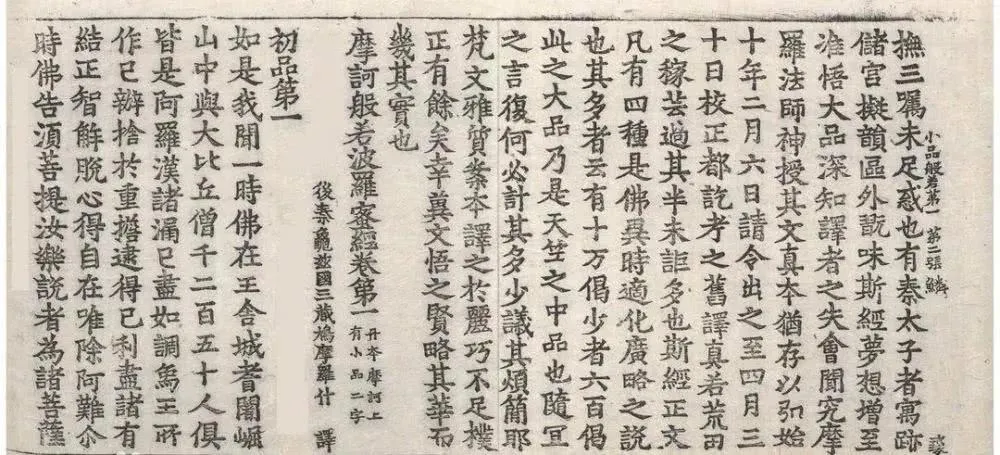 撫三囑未足惑也有秦太子者寓跡
小品般若第一　第二張　鱗
儲宮擬韻區外翫味斯經夢想增至
准悟大品深知譯者之失會聞究摩
羅法師神授其文真本猶存以弘始
十年二月六日請令出之至四月三
十日校正都訖考之舊譯真若荒田
之稼芸過其半未詎多也斯經正文
凡有四種是佛異時適化廣略之說
也其多者云有十万偈少者六百偈
此之大品乃是天竺之中品也隨冝
之言復何必計其多少議其煩簡耶
梵文雅質案本譯之於麗巧不足樸
正有餘矣幸冀文悟之賢略其華而
幾其實也
摩訶般若波羅蜜經卷第一
丹夲摩訶上
有小品二字
後秦龜玆國三藏鳩摩羅什　譯
初品第一
如是我聞一時佛在王舍城耆闍崛
山中與大比丘僧千二百五十人俱
皆是阿羅漢諸漏已盡如調馬王所
作已辦捨於重擔逮得己利盡諸有
結正智解脫心得自在唯除阿難尒
時佛告湏菩提汝樂說者為諸菩薩